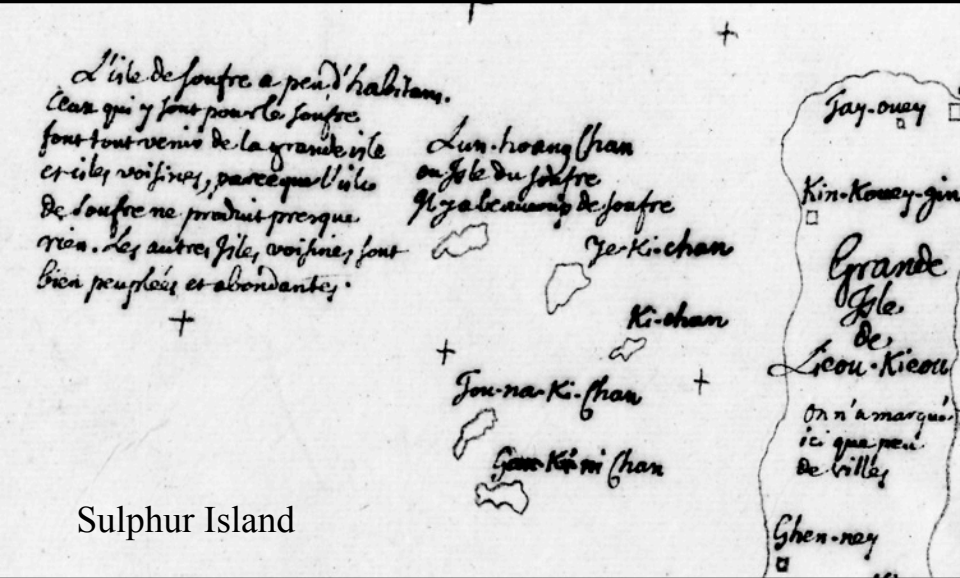 L'isle de soufre a peu d'habitans.
Ceux qui y sont pour le soufre
font tout venir de la grande isle
et isles voisines, parceque l'isle
de soufre ne produit presque
rien. Les autres Isles voisines sont
bien peuplées et abondantes.
Lun-hoang Chan
ou Isle du soufre
Il y a beaucoup de soufre
Ye-Ki-chan
Ki-chan
Tou-na-Ki-Chan
Kini Chan
Tay-ouey
Kin-Kouey-gin
Grande
Isle
de
Lieou-Kieou
On n'a marqué
ici que peu
de villes
Ghen-ney
Sulphur Island